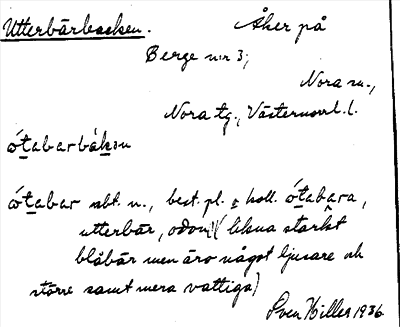 Utterbärbacken. Åker på
Berge n:r 3;
Nora sn.,
Nora tg., Västernorrl. l.
ó̱tabarbák̠ən
ó̱tabar sbt. n., best. pl. koll. ó̱tabara,
utterbär, odon (likna starkt
blåbär men äro något ljusare och
större samt mera vattiga)
Sven Hiller 1936